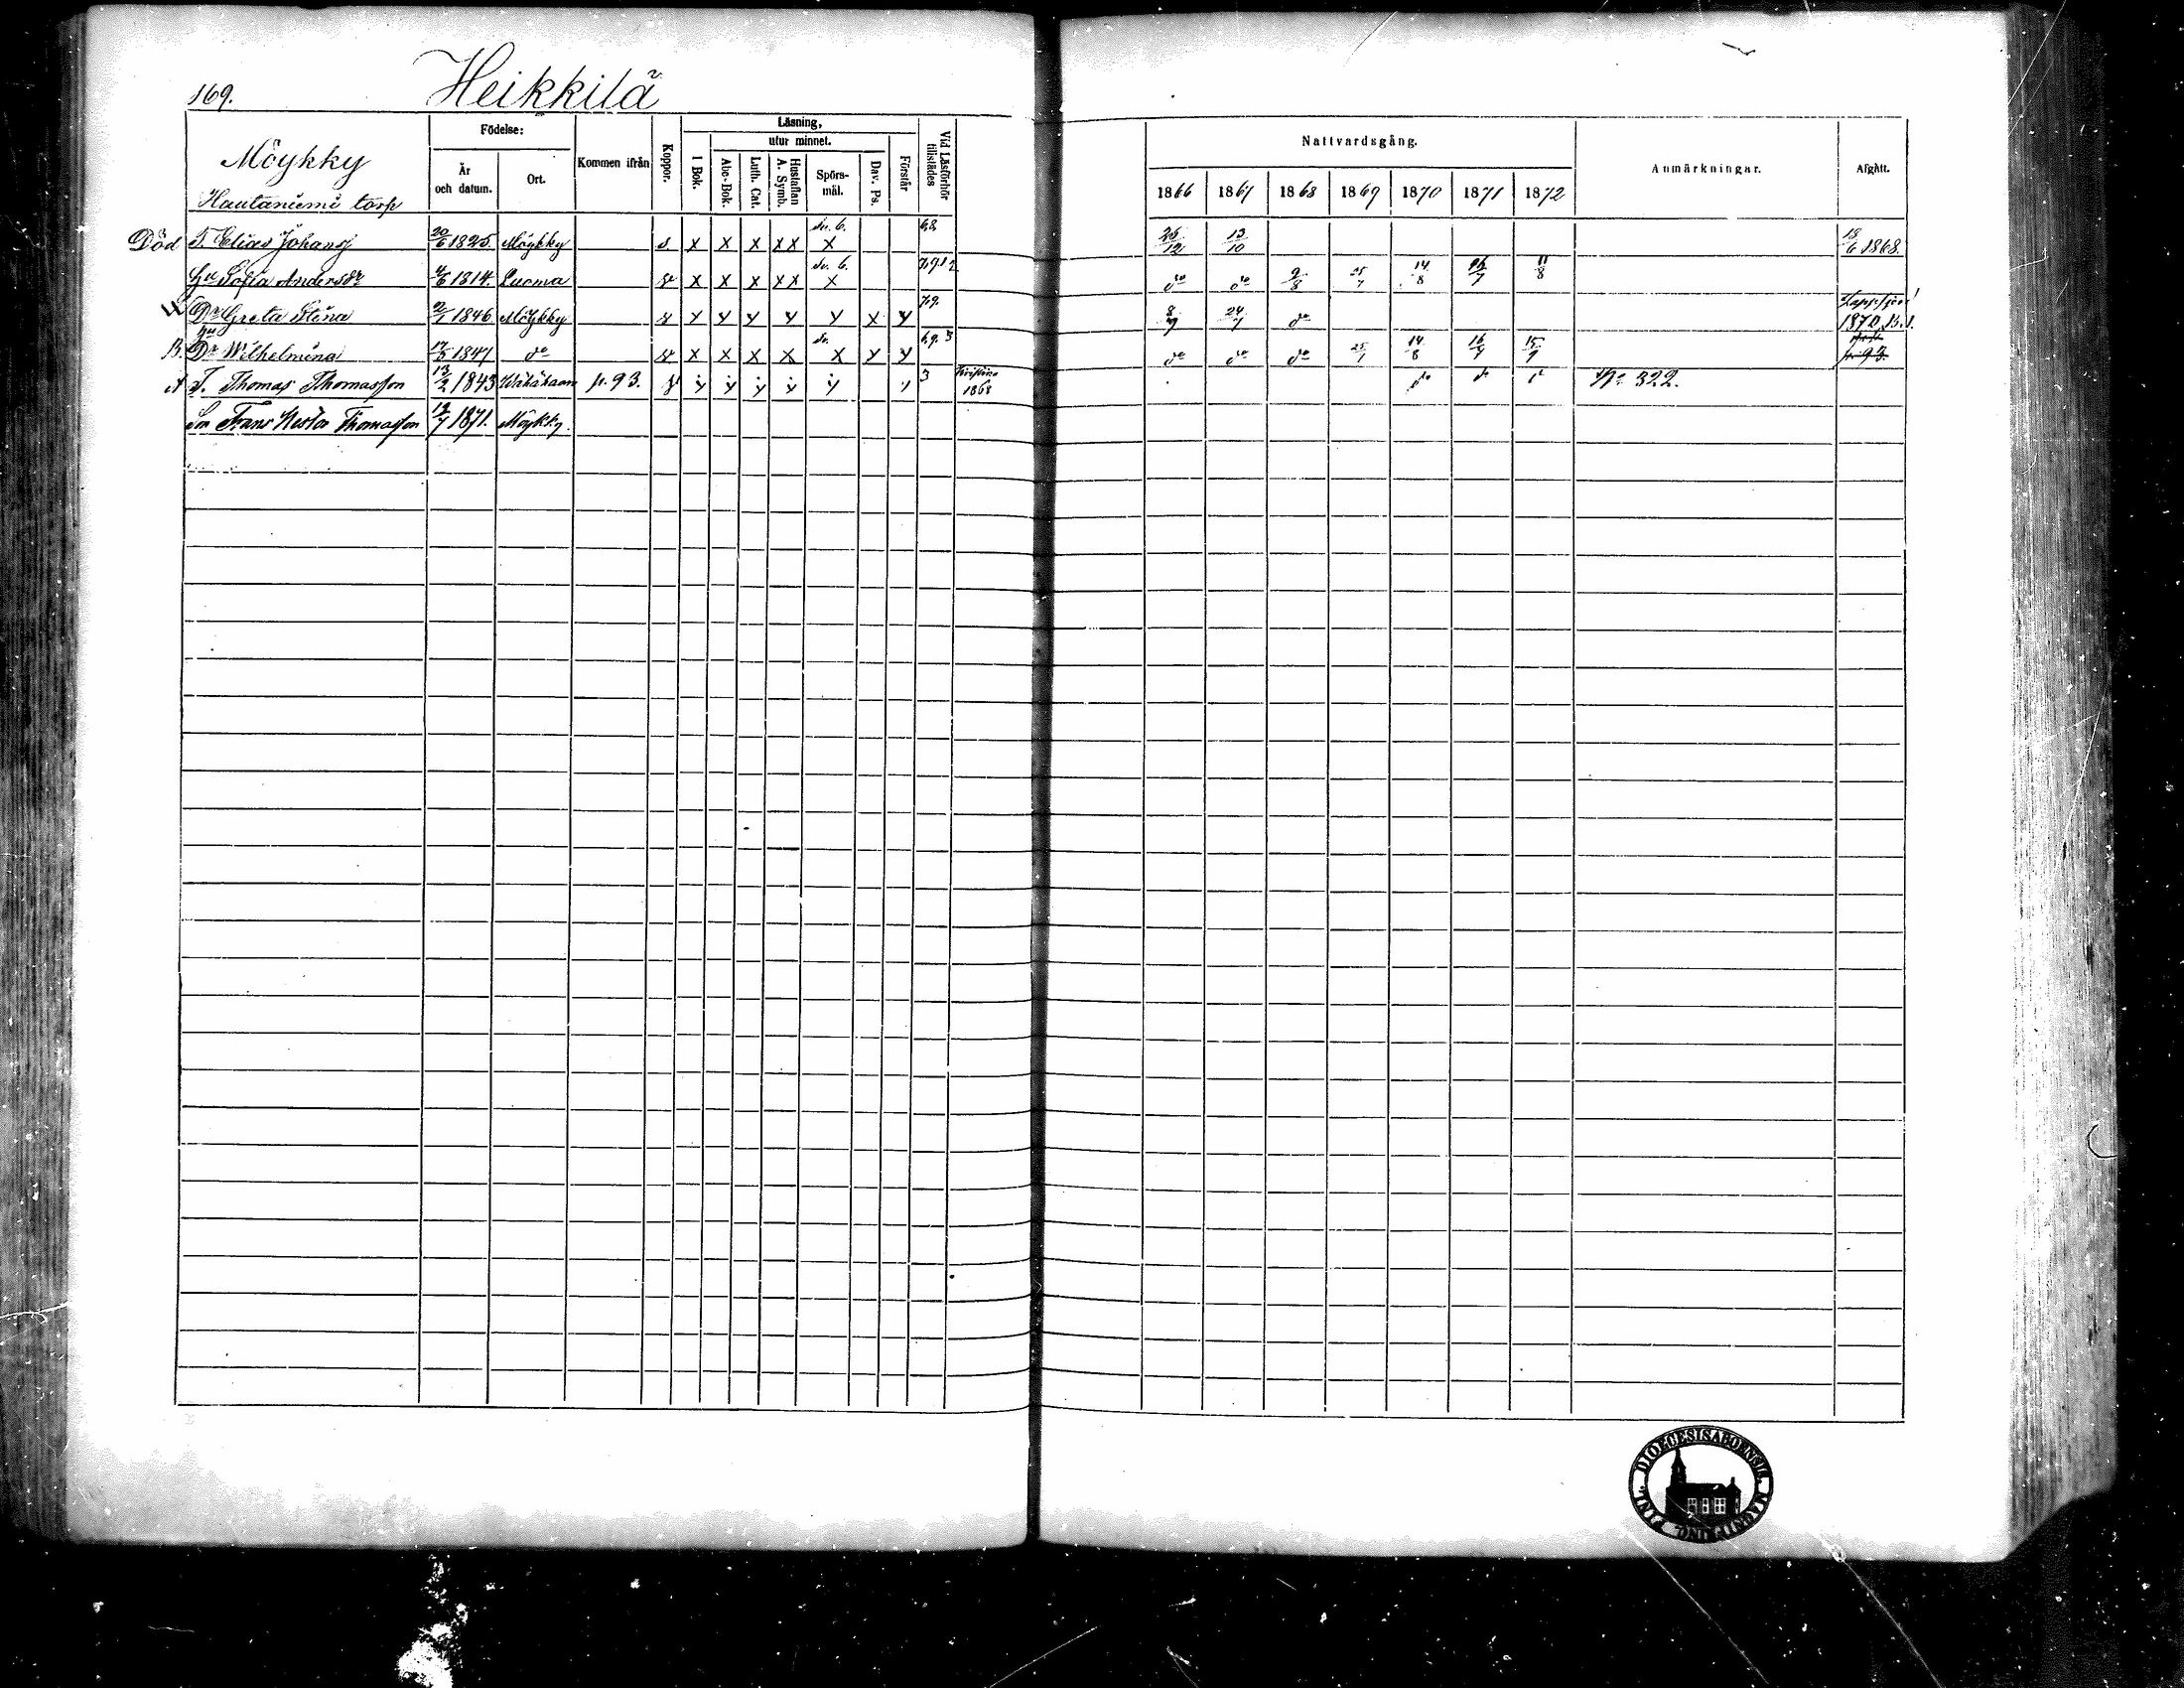 169.
Heikkilä
Möykky
Hautaniemi torp
Födelse:
År och datum.
Ort.
Kommen ifrån
Koppor.
Läsning,
utur minnet.
I Bok.
Abc-Bok.
Luth. Cat.
Hustaflan A. Symb.
Spörsmål.
Dav. Ps.
Förstår
Vid Läsförhör tillstädes
Nattvardsgång.
1866 1867 1868 1869 1870 1871 1872
Anmärkningar.
Afgått.
Död T. Elias Johansj 20/6 1825. Möykky s. x x x x x sv. 6. x 6,8 25/12 13/10 18/6 1868.
Hu Sofia Andersdr 4/6 1814. Luoma x x x x x sv. 6. x 7,9,1,2 do do 9/8 25/7 14/8 16/7 11/8
Dr Greta Stina 2/1 1846 Möykky y y y y y x y 7,9. 8/7 24/7 do 1870, B. 1.
B. Dr Wilhelmina 17/5 1847 do x x x x sv. x y y 6,9,3 do do do 25/7 14/8 16/7 15/9
A T. Thomas Thomasson 13/2 1843 p. 93. y y y y y y 3 1868 do do No 322.
Son Frans Nestor Thomasson 12/7 1871. Möykky.
FINL. DIOECESIS ABOENSIS MAGNI DUC.